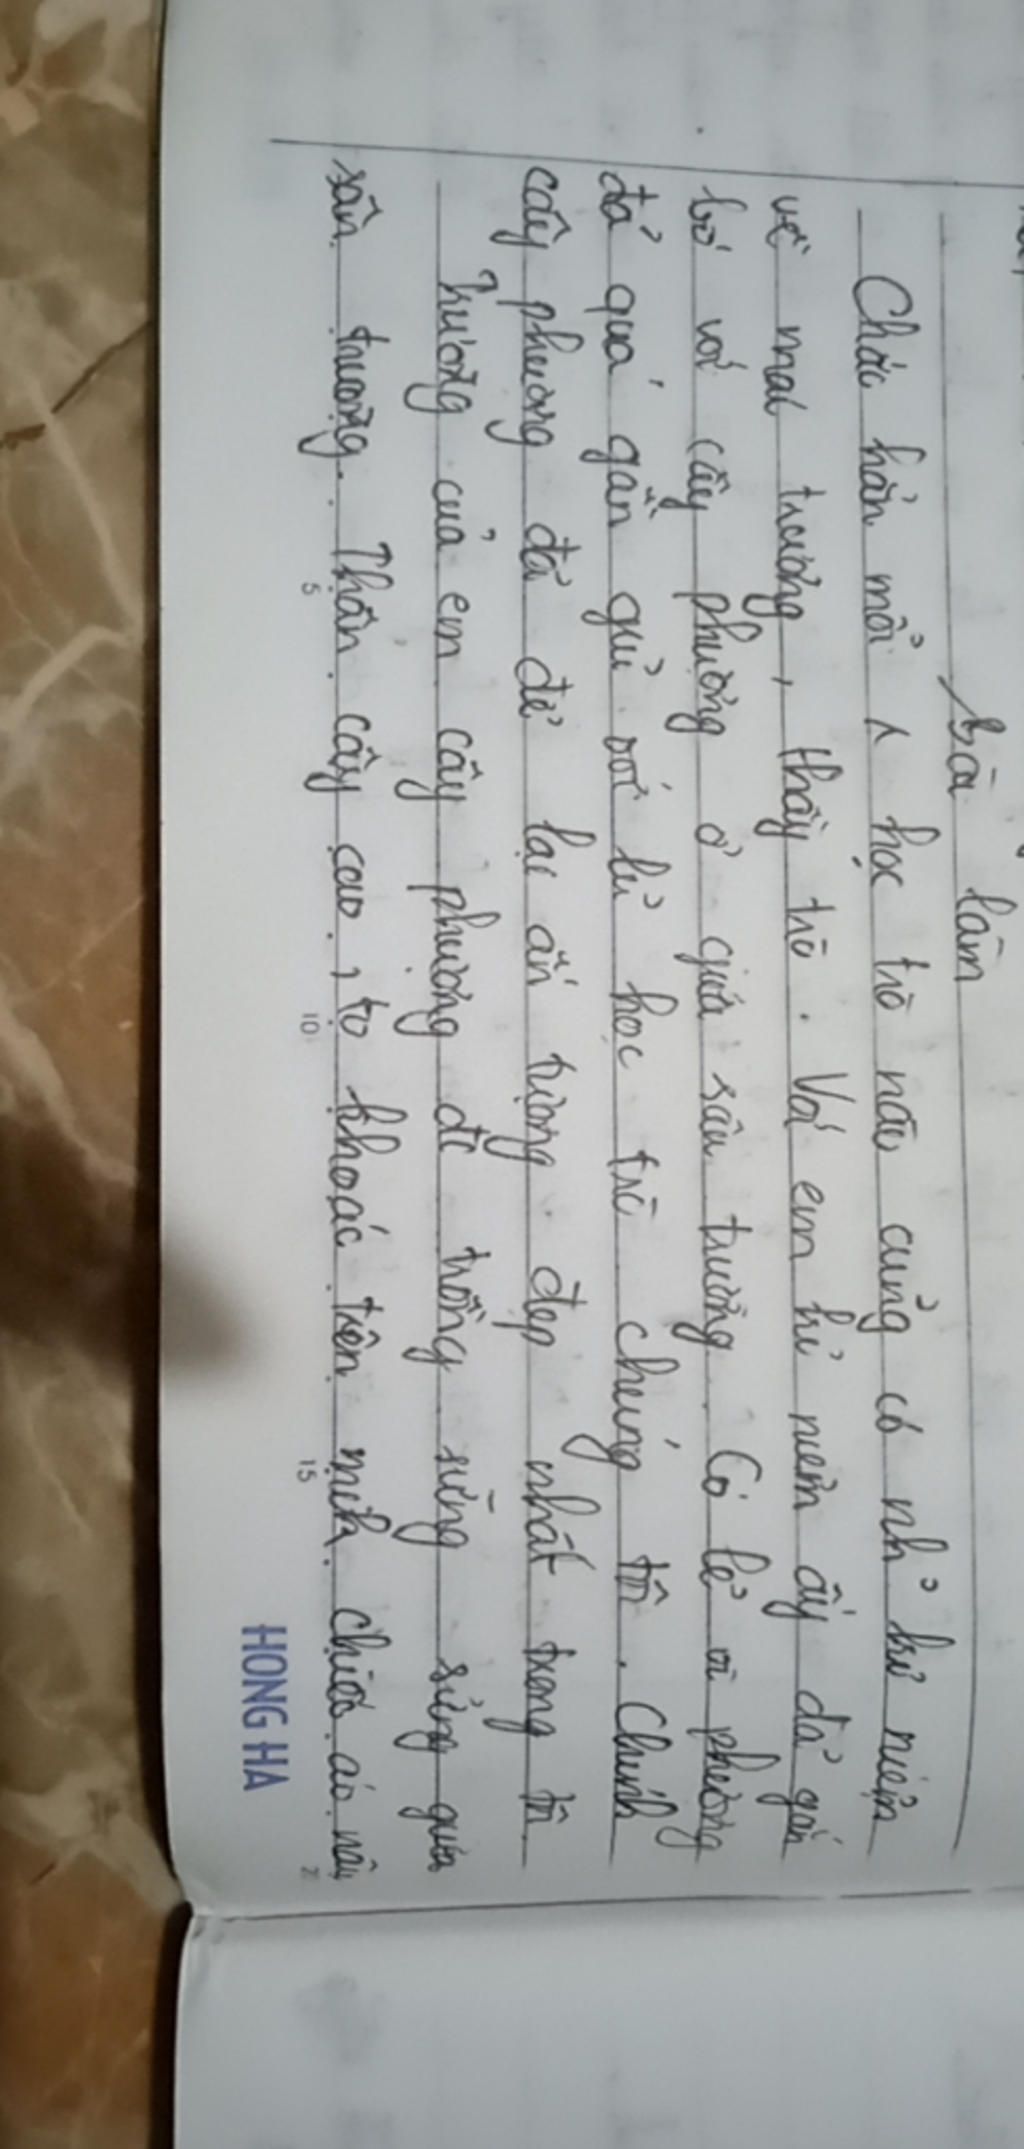 bài làm
Chác hẳn mổi 1 học trò nào củng có nhỉ kỉ niệm
về mái trường, thầy trò. Với em kỉ niệm ấy đả gắn
bó với cây phượng ở giửa sân trường. Có lẻ vì phượng
đả quá gần gủi với lủ học trò chúng tôi. Chính
cây phượng đả để lại ấn tượng đẹp nhất trong tôi
Trường của em cây phượng đc trồng sừng sửng giửa
sân trường. Thân cây cao, to khoác trên mình chiếc áo nâu
5 10 15
HONG HA